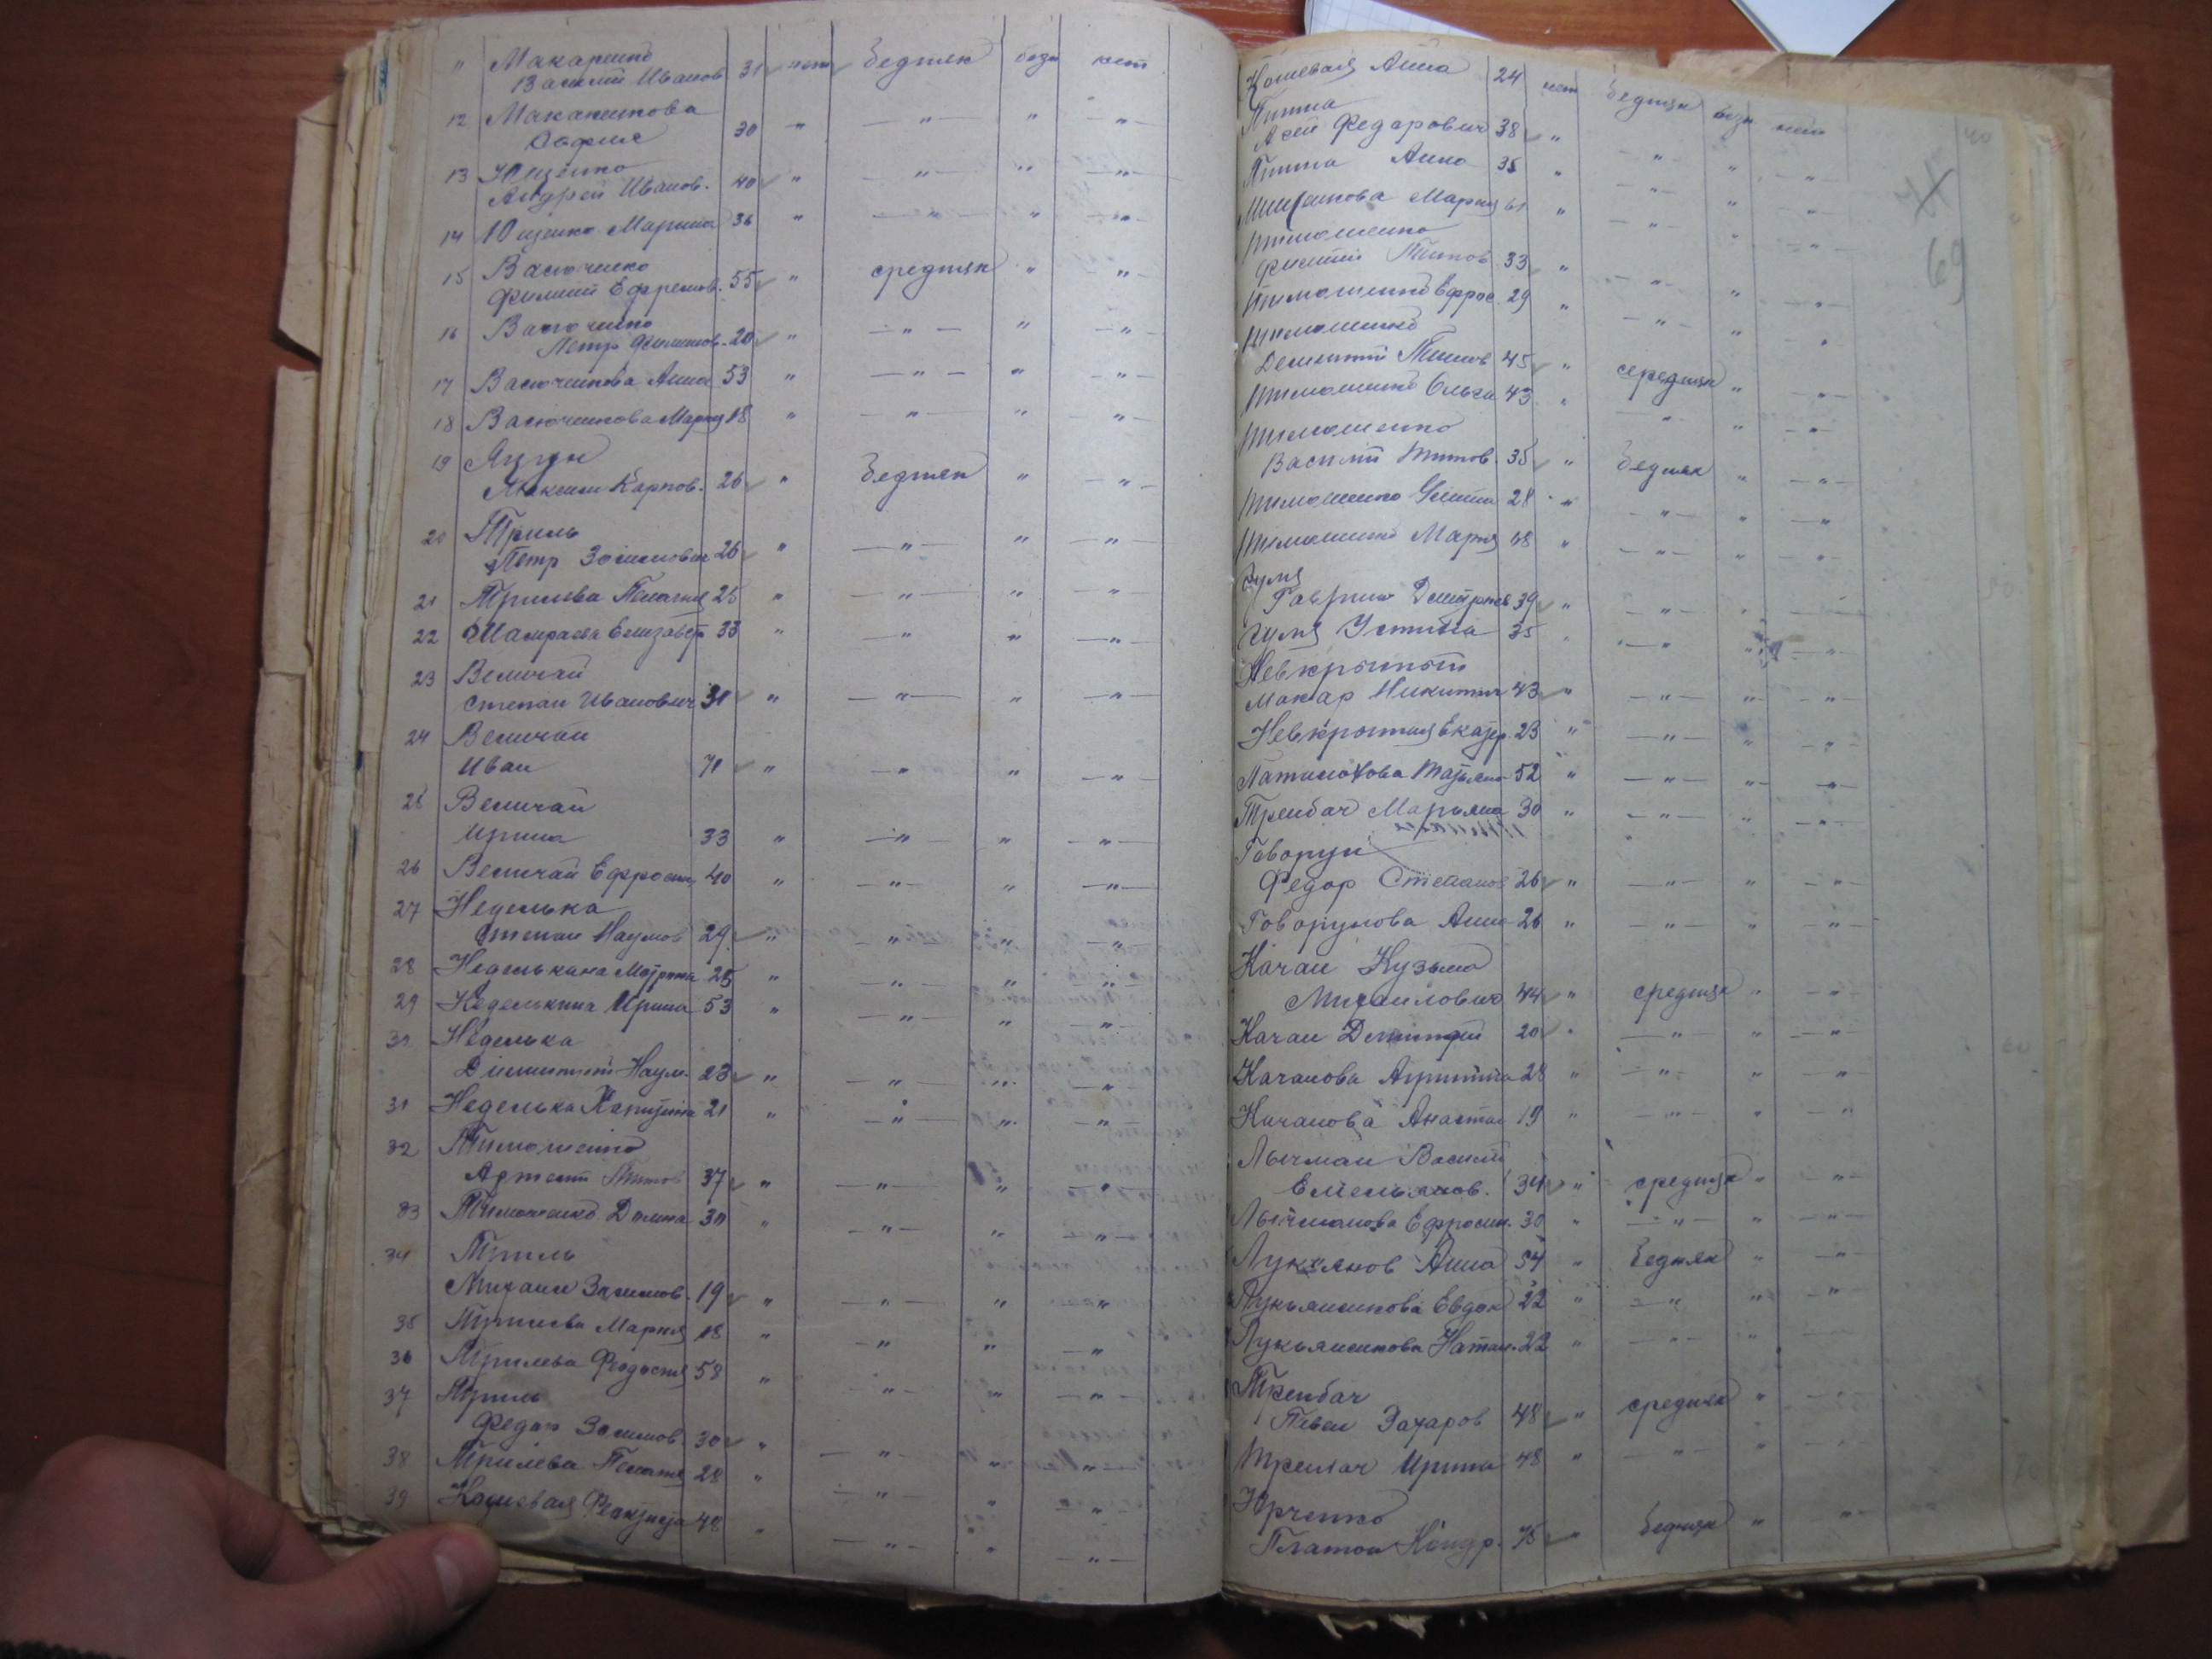 " Макаренко
Василий Иванов 31 нет бедняк безп нет
12 Макаренкова
София 30 " — " — " — " —
13 Ющенко
Андрей Иванов. 40 " — " — " — " —
14 Ющенко Марина 36 " — " — " — " —
15 Васюченко
Филипп Ефремов. 55 " средняк " — " —
16 Васюченко
Петр Филиппов. 20 " — " — " — " —
17 Васюченкова Анна 53 " — " — " — " —
18 Васюченкова Мария 18 " — " — " — " —
19 Яцун
Максим Карпов. 26 " бедняк " — " —
20 Триль
Петр Зосимович 26 " — " — " — " —
21 Трилева Пелагия 25 " — " — " — " —
22 Шамраева Елизавет 33 " — " — " — " —
23 Величай
Степан Иванович 31 " — " — " — " —
24 Величай
Иван 71 " — " — " — " —
25 Величай
Ирина 33 " — " — " — " —
26 Величай Ефросин 40 " — " — " — " —
27 Неделька
Степан Наумов 29 " — " — " — " —
28 Неделькина Мотрона 25 " — " — " — " —
29 Неделькина Ирина 53 " — " — " — " —
30 Неделька
Димитрий Наум. 23 " — " — " — " —
31 Неделька Харитина 21 " — " — " — " —
32 Тимошенко
Артем Титов 37 " — " — " — " —
33 Тимошенко Домна 30 " — " — " — " —
34 Триль
Михаил Зосимов. 19 " — " — " — " —
35 Трилева Мария 18 " — " — " — " —
36 Трилева Феодосия 58 " — " — " — " —
37 Триль
Федор Зосимов 30 " — " — " — " —
38 Трилева Пелагия 28 " — " — " — " —
39 Кошевая 48 " — " — " — " —
Кошевая Анна 24 нет бедняк безп нет
Федорович 38 " — " — " — " —
Анна 35 " — " — " — " —
Мария 61 " — " — " — " —
Тимошенко
Филипп Титов 33 " — " — " — " —
Тимошенко Ефрос. 29 " — " — " — " —
Тимошенко
Дементий Титов 45 " середняк " — " —
Тимошенко Ольга 43 " — " — " — " —
Тимошенко
Василий Титов. 35 " бедняк " — " —
Тимошенко 28 " — " — " — " —
Тимошенко Мария 68 " — " — " — " —
Гуля
Гаврило Дмитриев 39 " — " — " — " —
Гуля Устина 35 " — " — " — " —
Невкрытый
Макар Никитич 43 " — " — " — " —
Невкрытая Екатер. 23 " — " — " — " —
Татьяна 52 " — " — " — " —
Трембач Марьяна 30 " — " — " — " —
Говорун
Федор Степанов 26 " — " — " — " —
Говорунова Анна 26 " — " — " — " —
Качан Кузьма
Михаилович 44 " средняк " — " —
Качан Дмитрий 20 " — " — " — " —
Качанова 28 " — " — " — " —
Качанова Анастас 19 " — " — " — " —
Лычман Василий
Емельянов. 34 " средняк " — " —
Лычманова Ефросин. 30 " — " — " — " —
Лукьянов Анна 54 " бедняк " — " —
Лукьяненкова Евдок 22 " — " — " — " —
Лукьяненкова Натал. 22 " — " — " — " —
Трембач
Павел Захаров 48 " средняк " — " —
Трембач Ирина 48 " — " — " — " —
Юрченко
Платон Кондр. 75 " бедняк " " —
69